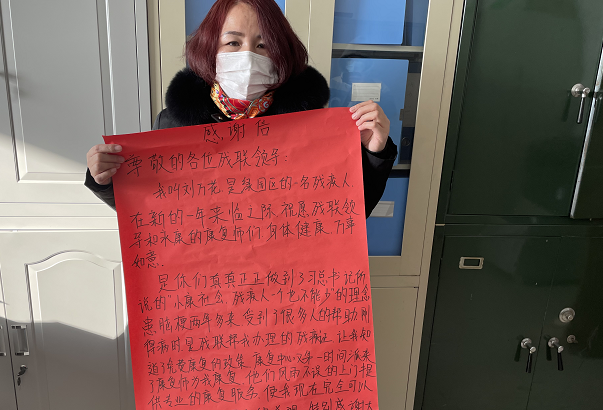 感谢信
尊敬的各位残联领导:
我叫刘万花 是泉园区的一名残疾人,
在新的一年来临之际,祝愿残联领
导和永康的康复师们 身体健康 万事
如意。
是你们真真正正做到了习总书记所
说的"小康社会,残疾人一个也不能少"的理念
患脑梗两年多来 受到了很多人的帮助 刚
得病时,是残联帮我办理的残疾证 让我知
道了免费康复的政策 康复中心又第一时间派来
了康复师为我康复,他们风雨不误的上门提
供专业的康复服务 使我现在完全可以
特别感谢